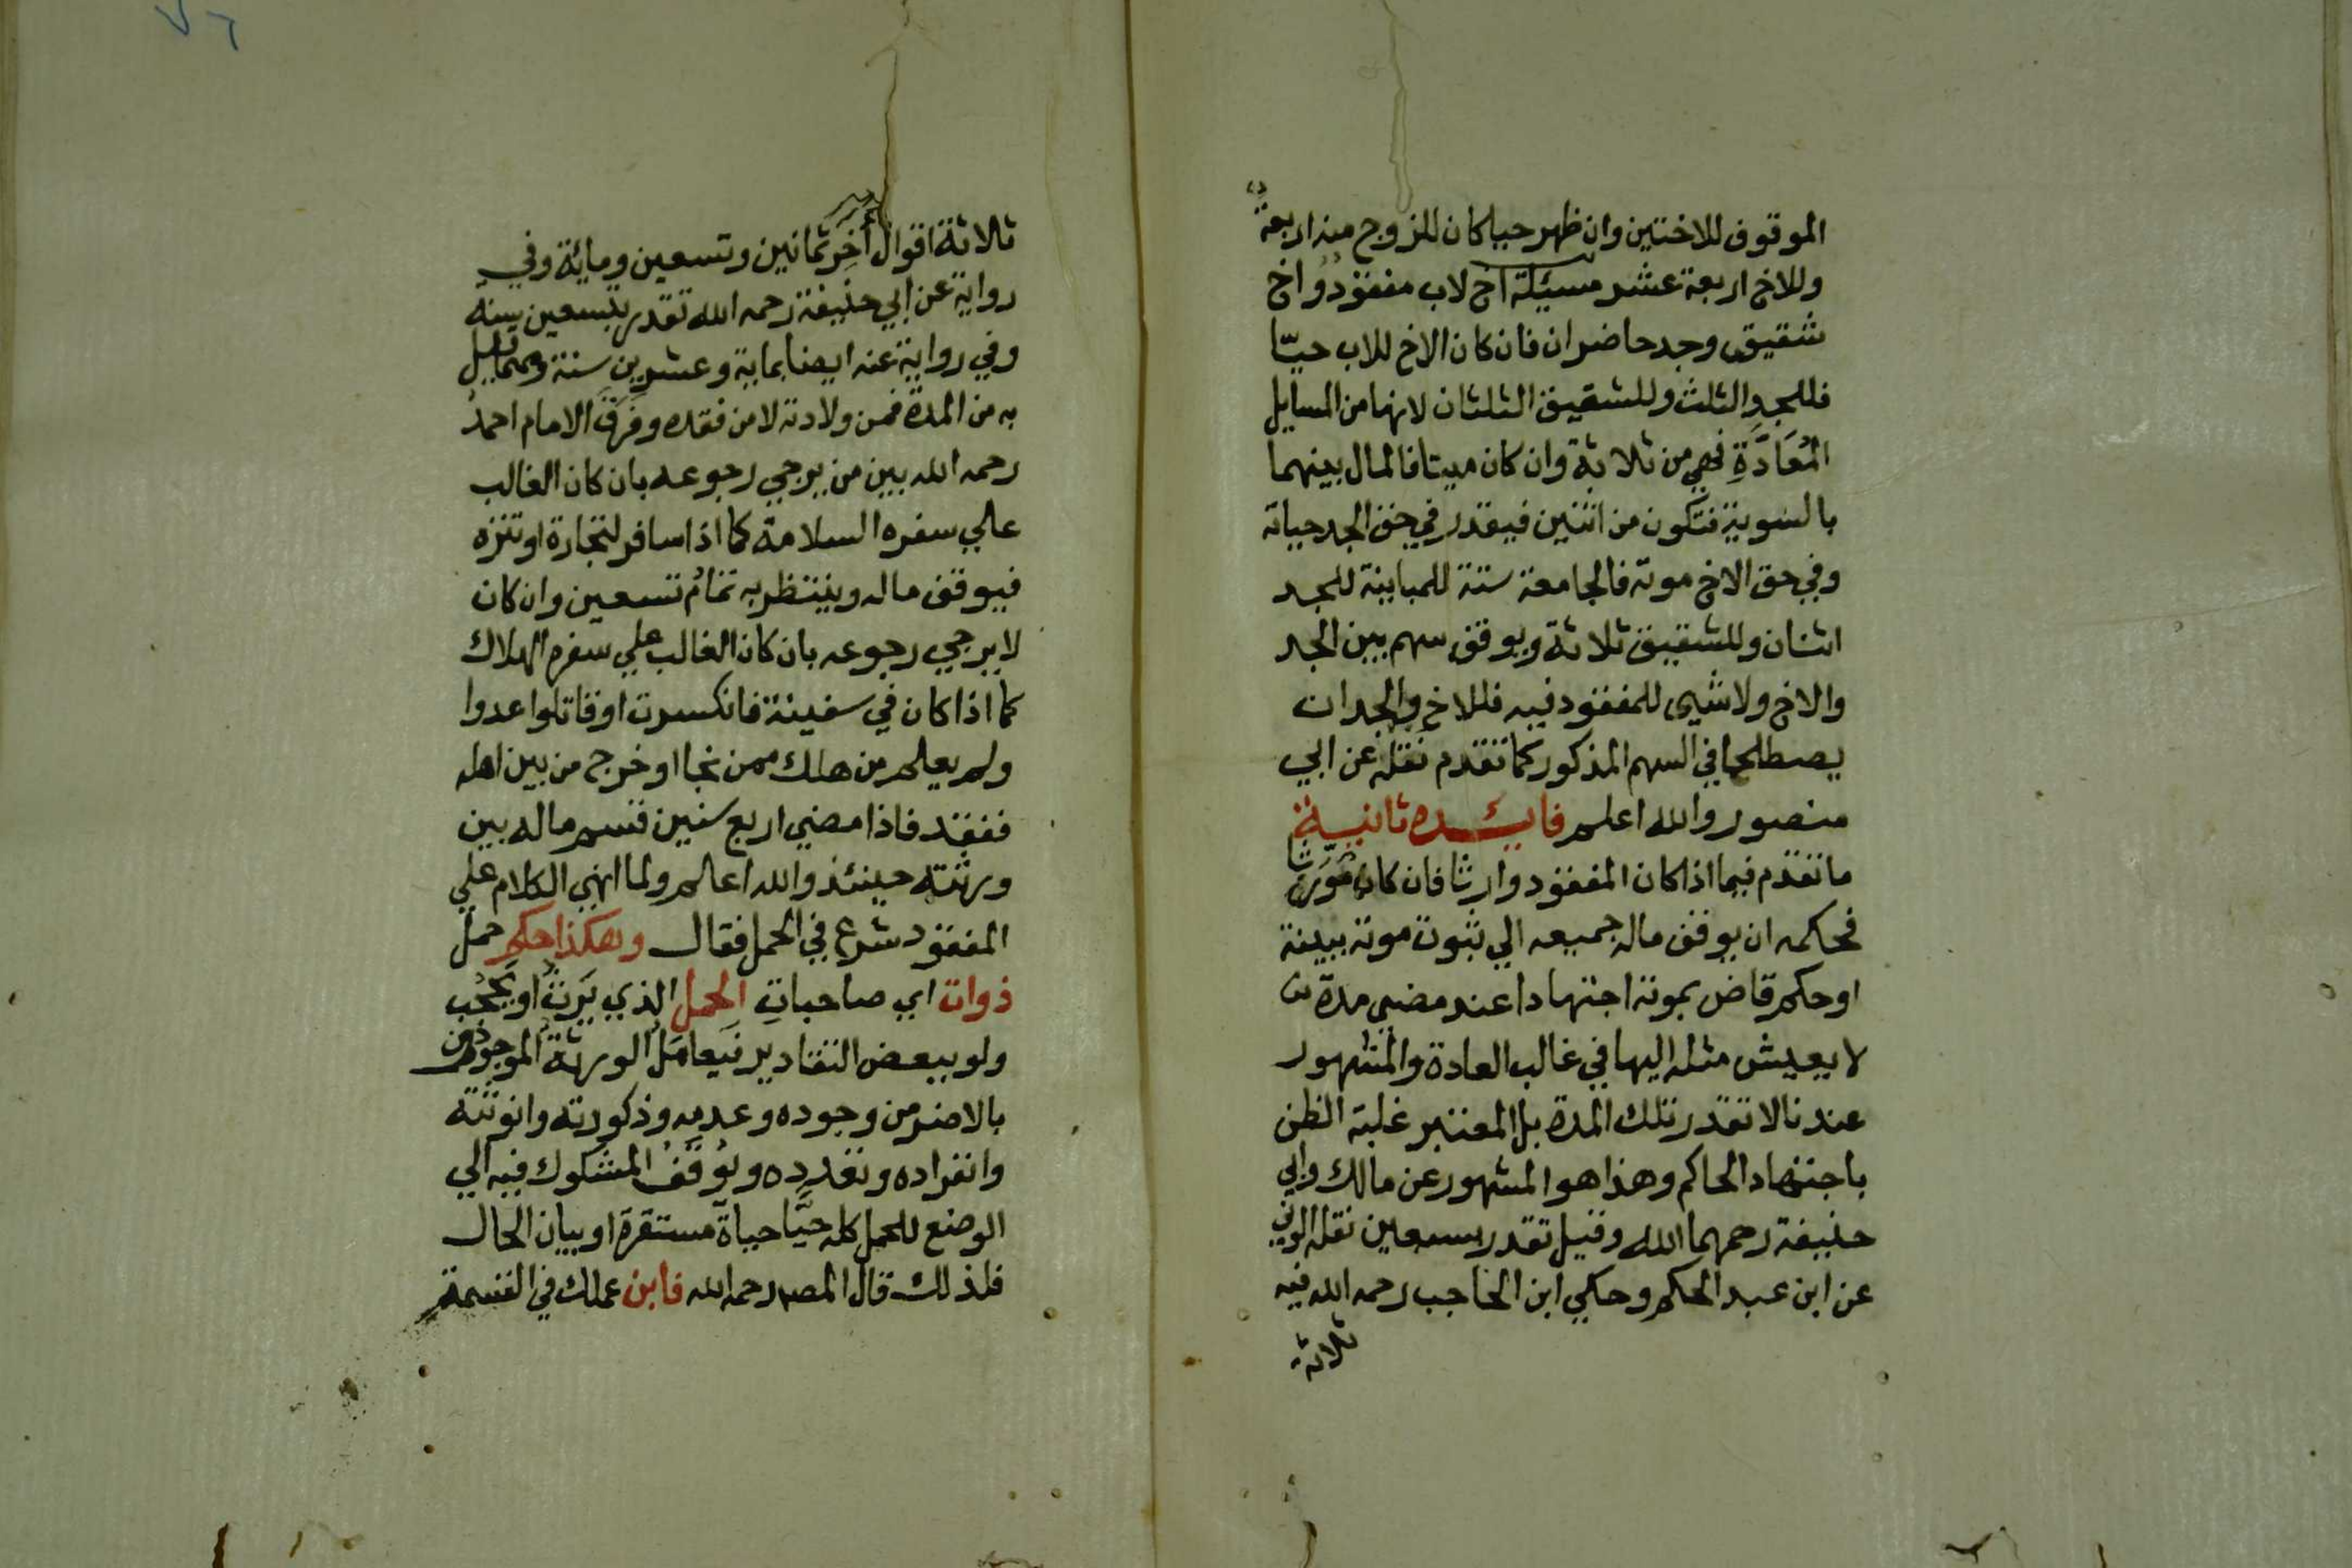 الموقوف للاختين وان ظهر حيا كان للزوج منه اربعة
وللاخ اربعة عشر مسئلة اخ لاب مفقود واخ
شقيق وجد حاضران فان كان الاخ للاب حيّا
فللجد الثلث وللشقيق الثلثان لانها من المسايل
المُعَادَّةِ فهي من ثلاثة وان كان ميتا فالمال بينهما
بالسوية فتكون من اثنين فيقدر في حق الجد حياته
وفي حق الاخ موته فالجامعة ستة للمباينة للجد
اثنان وللشقيق ثلاثة ويوقف سهم بين الجد
والاخ ولا شيى للمفقود فيه فللاخ والجد ان
يصطلحا في السهم المذكور كما تقدم نقله عن ابي
منصور والله اعلم فايـــدة ثانيــة
ما تقدم فيما اذا كان المفقود وارثا فان كان مُوَرِّثا
فحاكمه ان يوقف ماله جميعه الي ثبوت موته ببينة
او حكم قاض بموته اجتهادا عند مضي مدة
لا يعيش مثله اليها في غالب العادة والمشهور
عندنا لا تقدر تلك المدة بل المعتبر غلبة الظن
باجتهاد الحاكم وهذا هو المشهور عن مالك وابي
حنيفة رحمهما الله وقيل تقدر بسبعين نقله الوني
عن ابن عبد الحكم وحكي ابن الحاجب رحمه الله فيه
ثلاثة
٧٦
ثلاثة اقوال أُخَر ثمانين وتسعين ومائة وفي
رواية عن ابي حنيفة رحمه الله تقدر بتسعين سنة
وفي رواية عنه ايضا بماية وعشرين سنة ومهما قيل
به من المدة فمن ولادته لا من فقده وفَرَقَ الامام احمد
رحمه الله بين من يرجي رجوعه بان كان الغالب
علي سفره السلامة كما اذا سافر لتجارة او تنزه
فيوقف ماله وينتظر به تمام تسعين وان كان
لا يرجي رجوعه بان كان الغالب علي سفره الهلاك
كما اذا كان في سفينة فانكسرت او قاتلوا عدوا
ولم يعلم من هلك ممن نجا او خرج من بين اهله
ففقد فاذا مضي اربع سنين قسم ماله بين
ورثته حينئذ والله اعلم ولما انهي الكلام علي
المفقود شرع في الحمل فقال وهكذا حكم حمل
ذوات اي صاحباتِ الحمل الذي يَرِثُ او يَحْجُب
ولو ببعض التقادير فيَعامَلُ الورثةُ الموجودون
بالاضر من وجوده وعدمه وذكورته وانوثته
وانفراده وتعدده ويُوقَفُ المشكوك فيه الي
الوضع للحمل كله حيًّا حياةً مستقرة او بيان الحال
فلذلك قال المصـ رحمه الله فابن عملك في القسمة